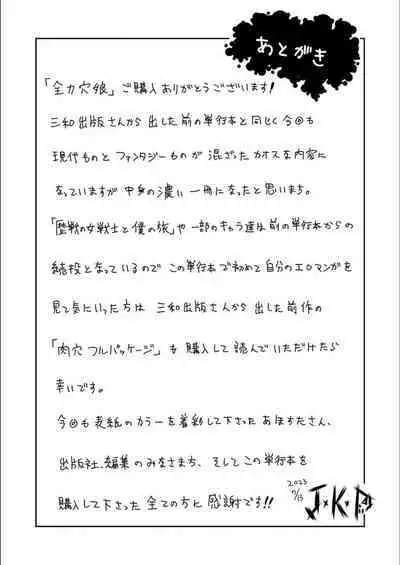 あとがき
「全力穴娘」ご購入ありがとうございます!
三和出版さんから出した前の単行本と同じく今回も
現代ものとファンタジーものが混ざったカオスな内容に
なっていますが中身の濃い一冊になったと思いまち。
「歴戦の女戦士と僕の旅」や一部のキャラ達は前の単行本からの
続投となっているのでこの単行本で初めて自分のエロマンガを
見て気にいった方は三和出版さんから出した前作の
「肉穴フルパッケージ」も購入して読んでいただけたら
幸いです。
今回も表紙のカラーを着彩して下さったあほちたさん、
出版社、編集のみなさまち、そしてこの単行本を
購入して下さった全ての方に感謝です!!
2023
7/13
J・K・P